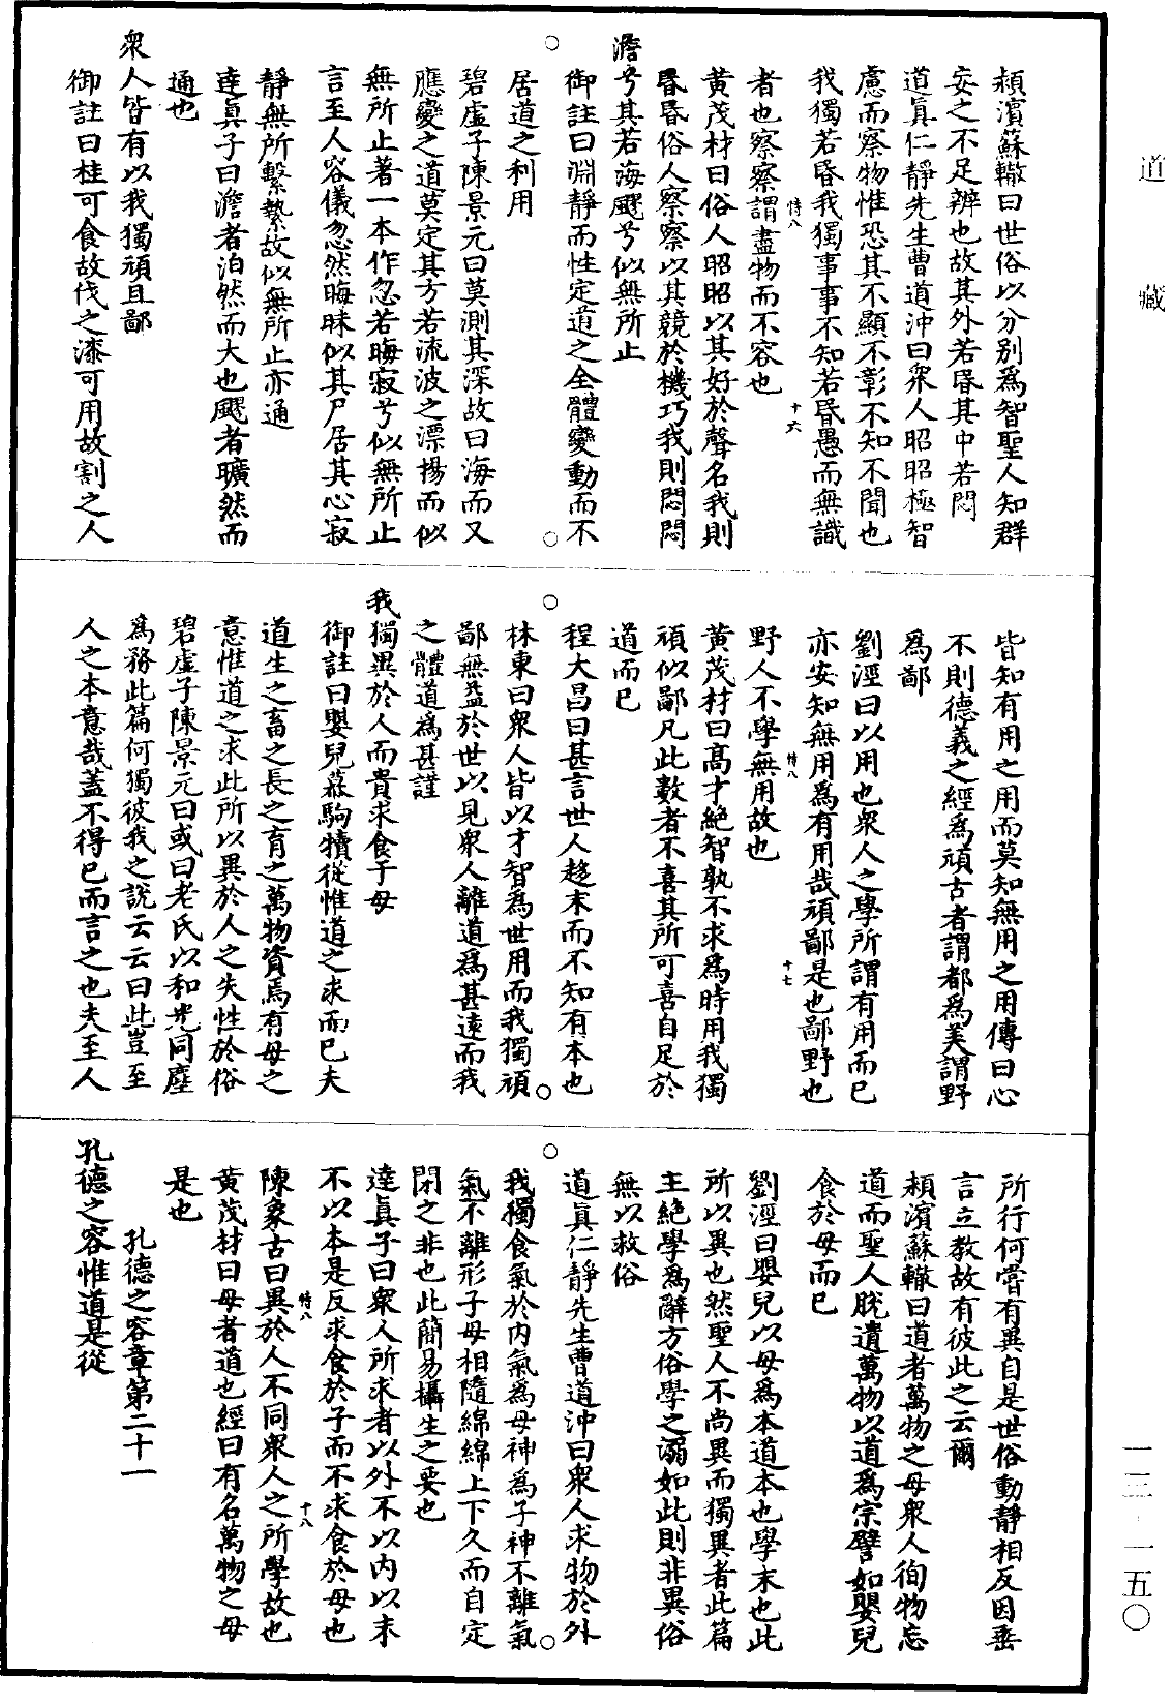 道藏
穎濱蘇轍曰世俗以分別爲智聖人知群
妄之不足辨也故其外若昬其中若悶
道真仁靜先生曹道沖曰衆人昭昭極智
慮而察物惟恐其不顯不彰不知不聞也
我獨若昬我獨事事不知若昬愚而無識
者也察察謂盡物而不容也
恃八
十六
黃茂材曰俗人昭昭以其好於聲名我則
昬昬俗人察察以其競於機巧我則悶悶
澹兮其若海飂兮似無所止
御註曰淵靜而性定道之全體變動而不
居道之利用
碧虛子陳景元曰莫測其深故曰海而又
應變之道莫定其方若流波之漂揚而似
無所止著一本作忽若晦寂兮似無所止
言至人容儀忽然晦昧似其尸居其心寂
靜無所繫縶故似無所止亦通
達真子曰澹者泊然而大也飂者曠然而
通也
衆人皆有以我獨頑且鄙
御註曰桂可食故伐之漆可用故割之人
皆知有用之用而莫知無用之用傳曰心
不則德義之經爲頑古者謂都爲美謂野
爲鄙
劉涇曰以用也衆人之學所謂有用而已
亦安知無用爲有用哉頑鄙是也鄙野也
恃八
十七
野人不學無用故也
黃茂材曰高才絕智孰不求爲時用我獨
頑似鄙凡此數者不喜其所可喜自足於
道而已
程大昌曰甚言世人趍末而不知有本也
林東曰衆人皆以才智爲世用而我獨頑
鄙無益於世以見衆人離道爲甚遠而我
之體道爲甚謹
我獨異於人而貴求食于母
御註曰嬰兒慕駒犢從惟道之求而已夫
道生之畜之長之育之萬物資焉有母之
意惟道之求此所以異於人之失性於俗
碧虛子陳景元曰或曰老氏以和光同塵
爲務此篇何獨彼我之說云云曰此豈至
人之本意哉蓋不得已而言之也夫至人
所行何嘗有異自是世俗動靜相反因垂
言立教故有彼此之云爾
穎濱蘇轍曰道者萬物之母衆人徇物忘
道而聖人脫遺萬物以道爲宗譬如嬰兒
食於母而已
劉涇曰嬰兒以母爲本道本也學末也此
所以異也然聖人不尚異而獨異者此篇
主絕學爲辭方俗學之溺如此則非異俗
無以救俗
道真仁靜先生曹道沖曰衆人求物於外
我獨食氣於內氣爲母神爲子神不離氣
氣不離形子母相隨綿綿上下久而自定
閉之非也此簡易攝生之要也
達真子曰衆人所求者以外不以內以末
不以本是反求食於子而不求食於母也
恃八
十八
陳象古曰異於人不同衆人之所學故也
黃茂材曰母者道也經曰有名萬物之母
是也
孔德之容章第二十一
孔德之容惟道是從
一三·一五〇